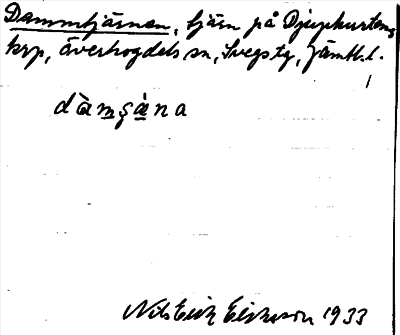 Dammtjärnen, tjärn på Djuphultens
krp, Överhogdals sn, Svegs tg, Jämtl. l.
dàmşàna
Nils Erik Eriksson 1933